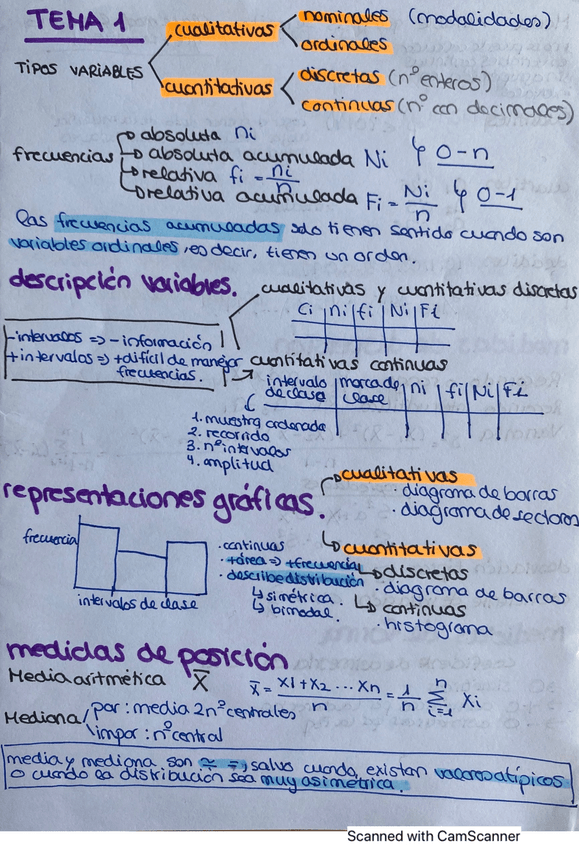 TEMA 1
TIPOS VARIABLES
cualitativas
nominales (modalidades)
ordinales
cuantitativas
discretas (nº enteros)
continuas (nº con decimales)
frecuencias
absoluta ni
absoluta acumulada Ni 0-n
relativa fi = ni/n
relativa acumulada Fi = Ni/n 0-1
las frecuencias acumuladas solo tienen sentido cuando son
variables ordinales, es decir, tienen un orden.
descripción variables.
cualitativas y cuantitativas discretas
Ci | ni | fi | Ni | Fi
-intervalos => -información
+intervalos => +difícil de manejar
frecuencias.
cuantitativas continuas
intervalo de clase | marca de clase | ni | fi | Ni | Fi
1. muestra ordenada
2. recorrido
3. nº intervalos
4. amplitud
representaciones gráficas.
cualitativas
· diagrama de barras
· diagrama de sectores
cuantitativas
discretas
· diagrama de barras
continuas
· histograma
frecuencia
intervalos de clase
· continuas
· +área => +frecuencia
· describe distribución
simétrica.
bimodal.
medidas de posición
Media aritmética X̄
x̄ = x1+x2 ... xn / n = 1/n Σ i=1 n xi
Mediana
par: media 2 nº centrales
impar: nº central
media y mediana son ≃ =, salvo cuando existan valores atípicos
o cuando la distribución sea muy asimétrica.
Scanned with CamScanner